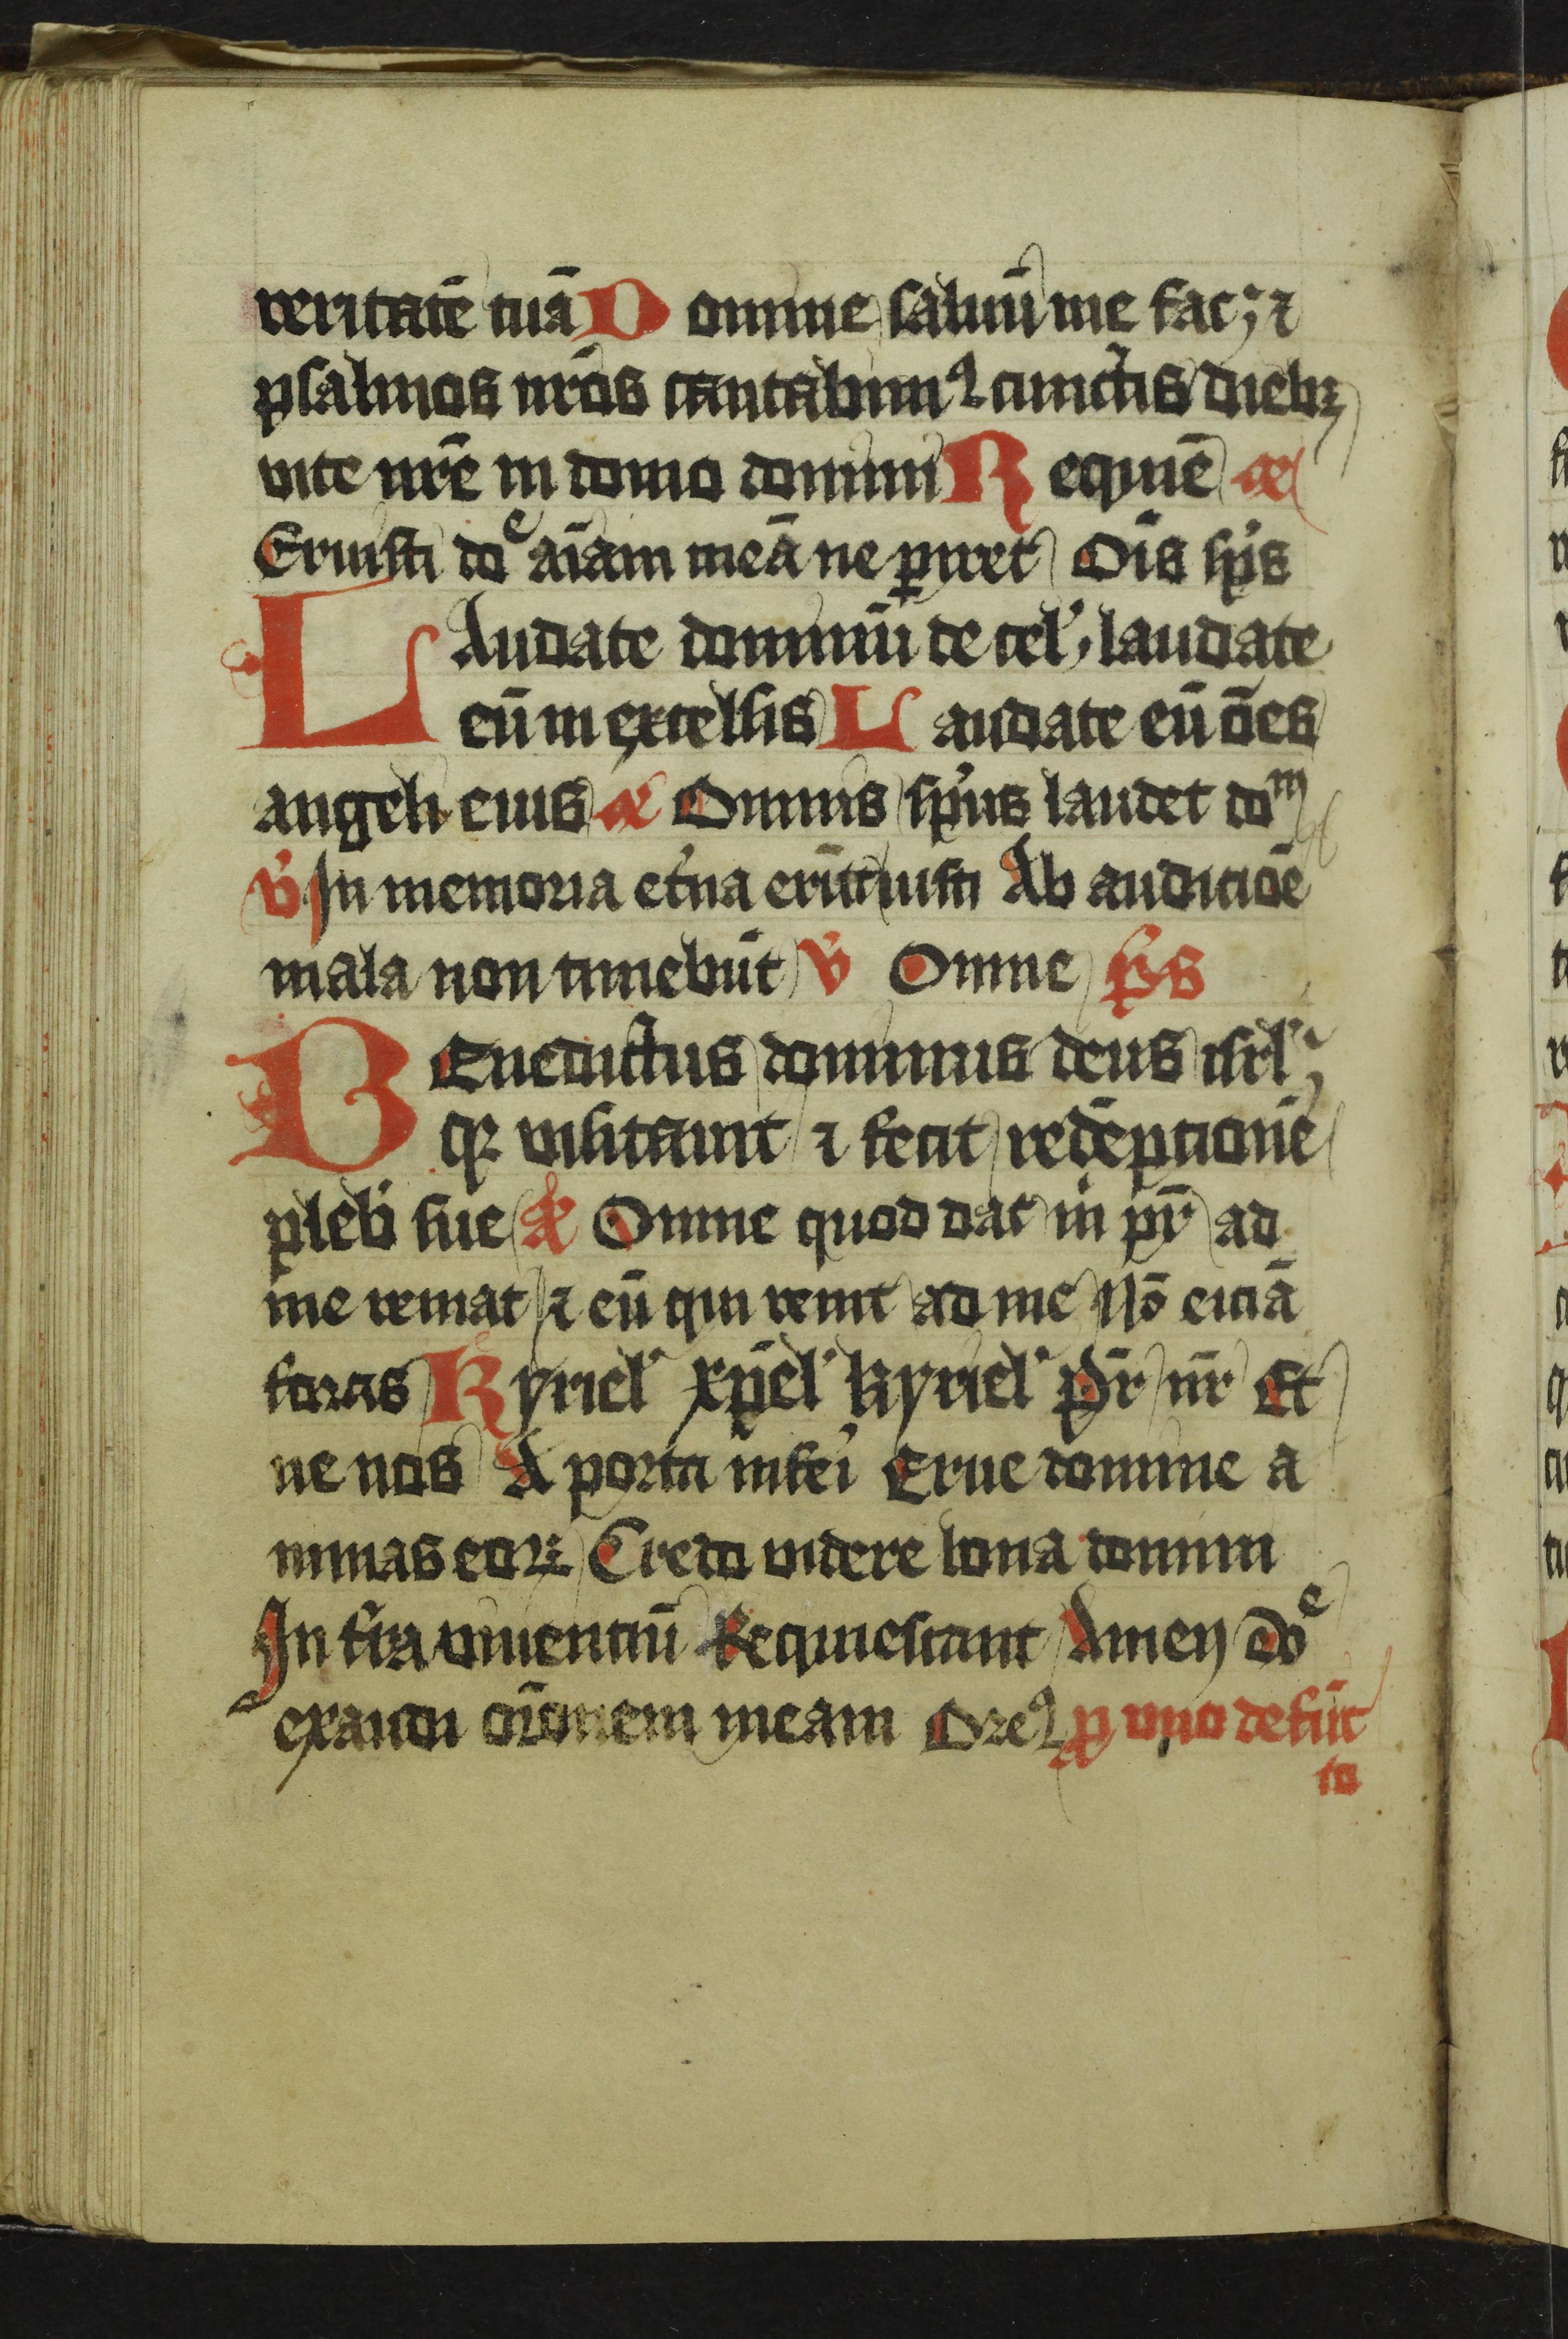 veritatē tuā D omine saluū me fac ; ⁊
psalmos nr̄os cantabimꝰ cunctis diebꝫ
vite nr̄e in domo domini R equiē añ
Eruisti doᵉ aīam meā ne ꝑiret Oīs sp̄s
L Audate dominū de cel' laudate
eū in excelsis L audate eū ōes
angeli eius añ Omnis sp̄us laudet doᵐ
v̓ In memoria et̓na erūt iusti Ab audicōe
mala non timebūt v̓ Omne p̄s
B Enedictus dominus deus isrl' ;
qꝛ visitauit ⁊ fecit redēptionē
pleb' sue añ Omne quod dat m̄ pr̄ ad
me veniat ⁊ eū qui venit ad me Nō eiciā
foras K yriel' xp̄el' kyriel' Pr̄ nr̄ Et
ne nos A porta inferi Erue domine a
nimas eoꝝ Credo videre bona domini
In tr̄a viuentiū Requiescant Amen doᵉ
exaudi orōnem meam Oremꝰ ꝓ vno defūc
to